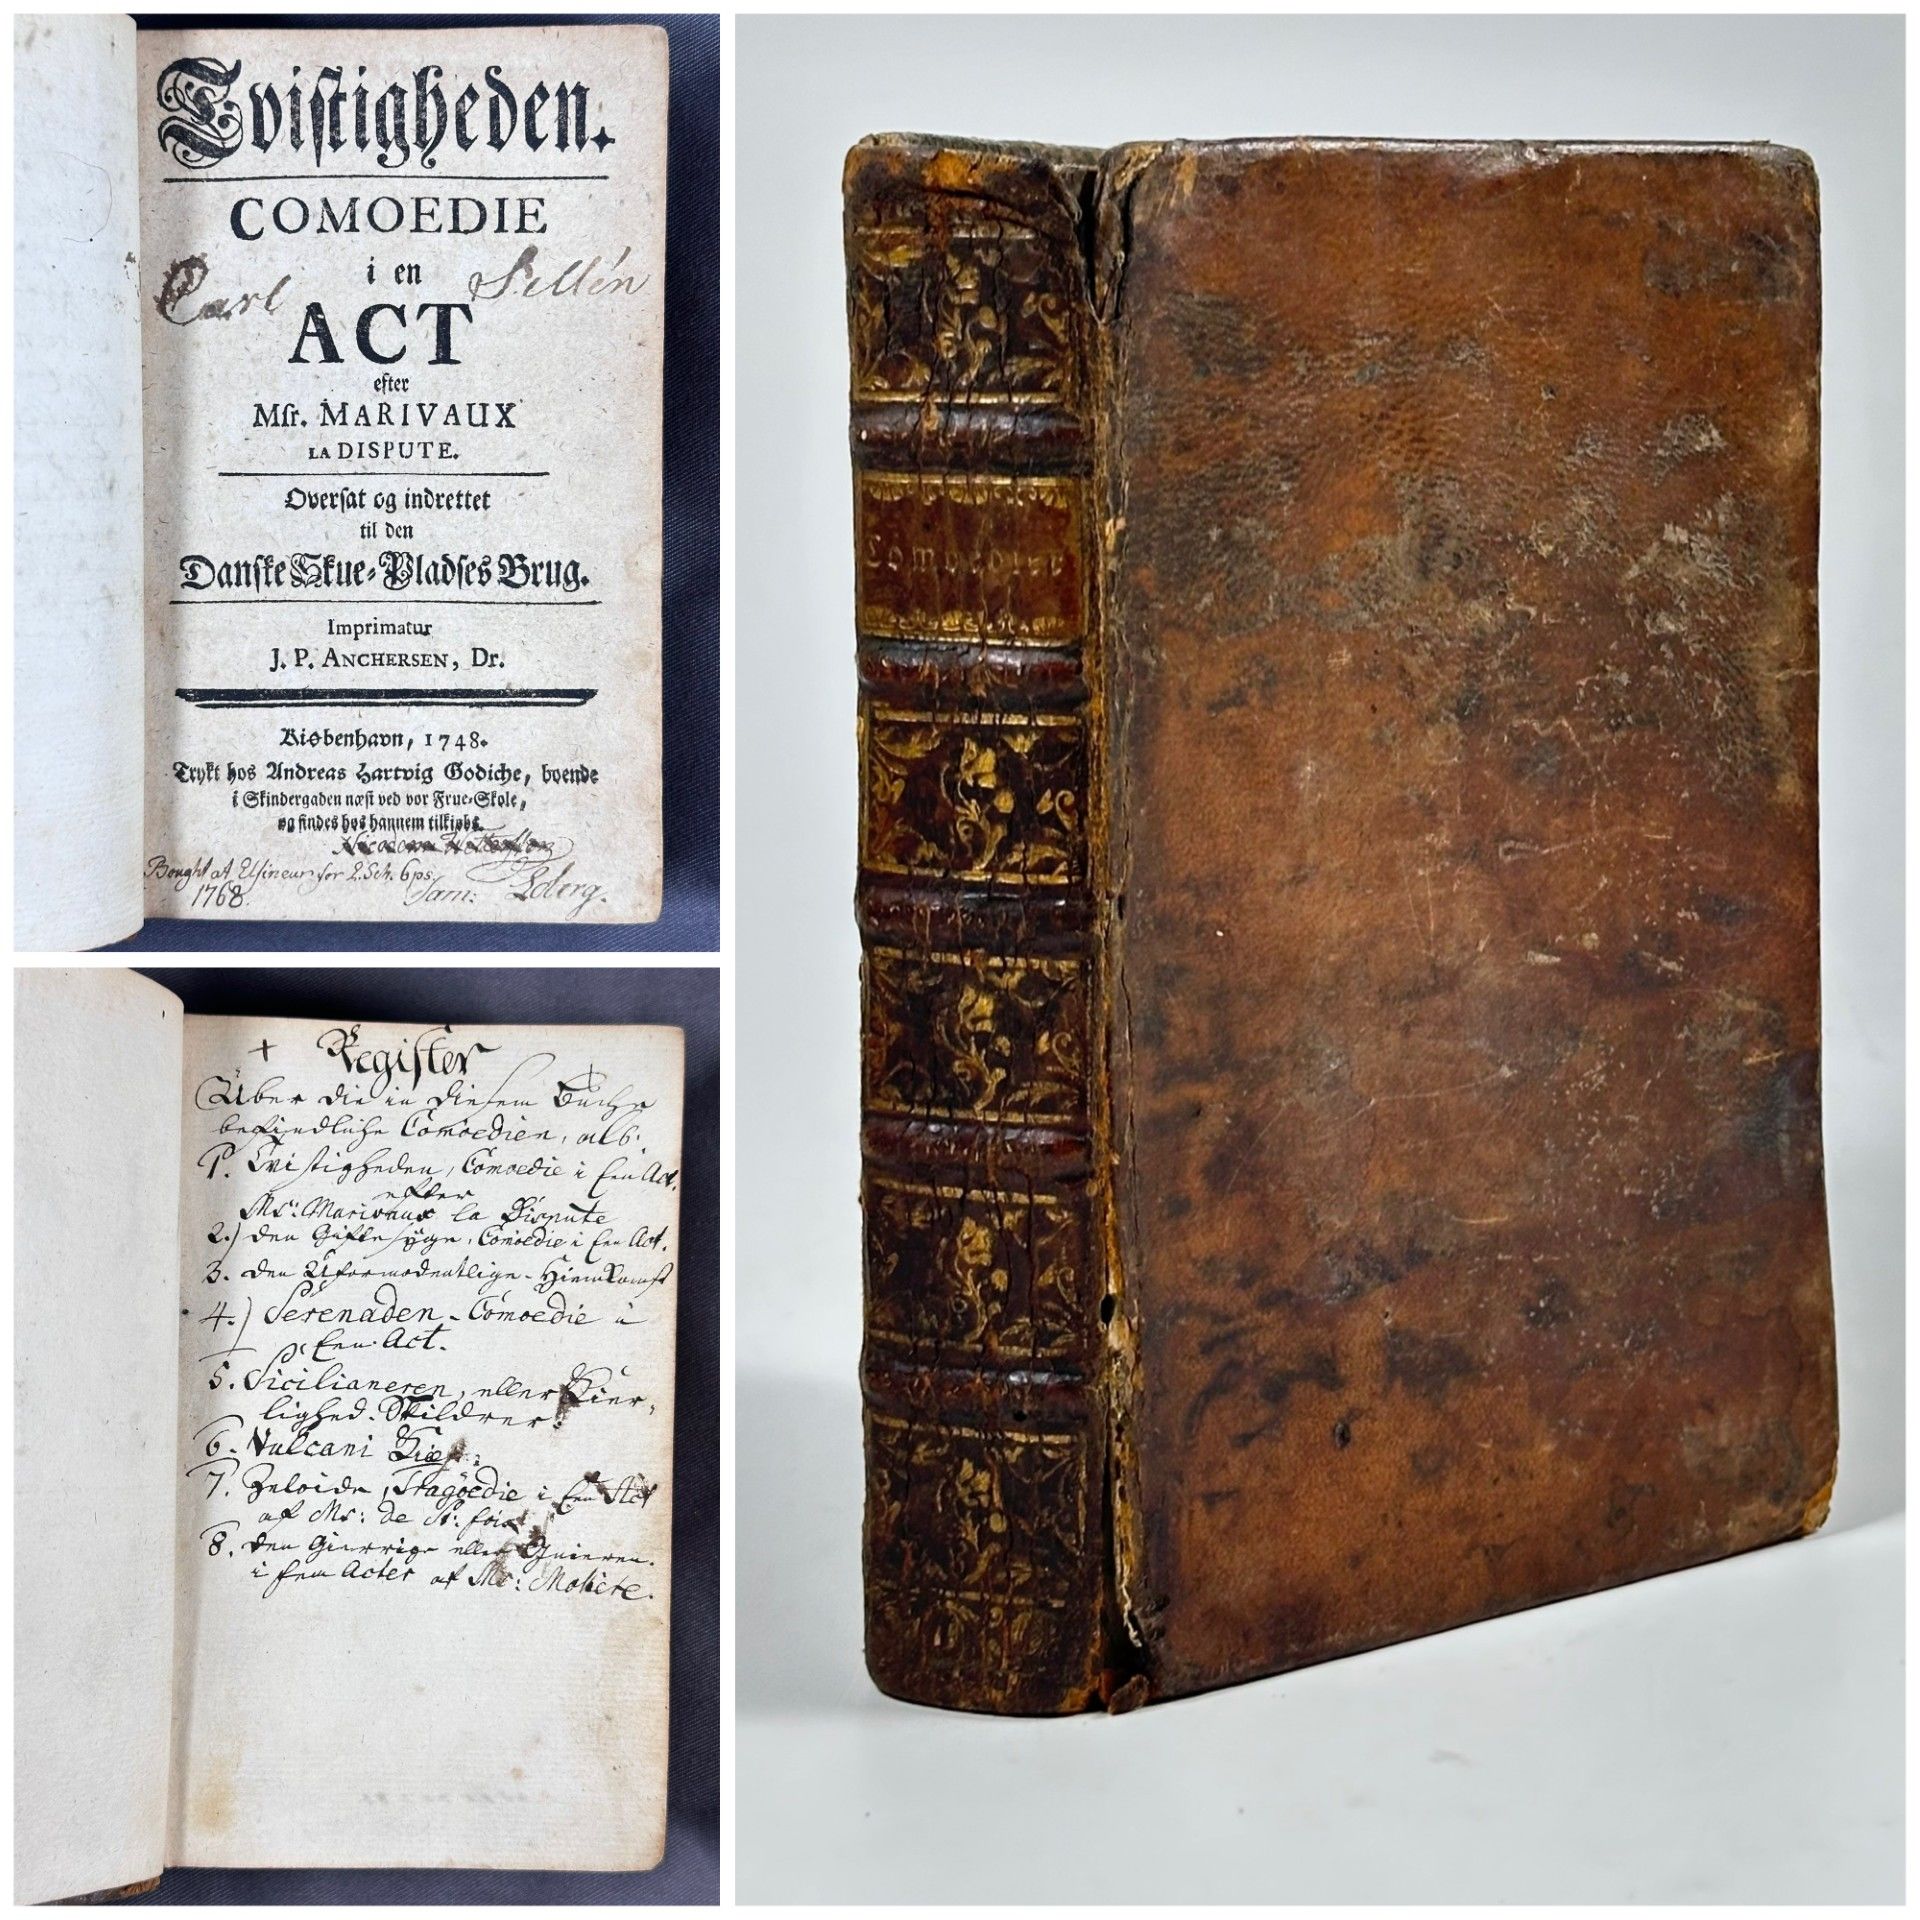 Tvistigheden.
COMOEDIE
i en
Carl Sellén
ACT
efter
Msr. MARIVAUX
LA DISPUTE.
Oversat og indrettet
til den
Danske Skue-Pladses Brug.
Imprimatur
J. P. ANCHERSEN, Dr.
Kiøbenhavn, 1748.
Trykt hos Andreas Hartvig Godiche, boende
i Skindergaden næst ved vor Frue-Skole,
og findes hos hannem tilkiøbs.
Bought at Elsineur for 2 Sch. 6 ps.
1768. Sam:
+ Register
Über die in diesem Buche
befindliche Comoedien, als.
1. Tvistigheden, Comoedie i Een Act.
efter
Mr: Marivaux la Dispute
2.) den Giftesyge, Comoedie i Een Act.
3. den Uformodentlige Hiemkomst
4.) Serenaden - Comoedie i
Een Act.
5. Sicilianeren, eller Kier-
lighed Skildrer
6. Vulcani
7. Zeloide, Tragoedie i Een Act
af Mr: de St: foix
8. den Gierrige eller Gnieren.
i fem Acter af Mr: Moliere.
Comoedier